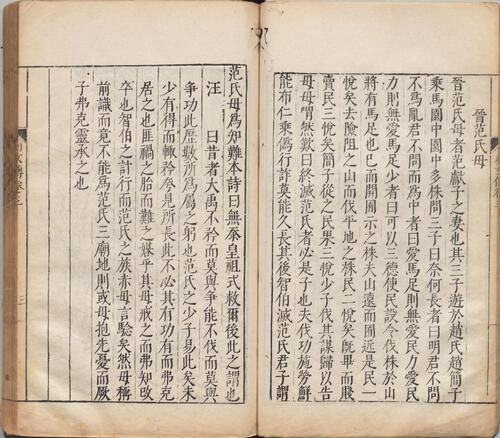 晉范氏母
晉范氏母者范獻子之妻也其三子遊於趙氏趙簡子
乘馬園中園中多株問三子曰奈何長者曰明君不問
不為亂君不問而為中者曰愛馬足則無愛民力愛民
力則無愛馬足少者曰可以三德使民設令伐株於山
將有馬足也巳而開囿示之株夫山遠而囿近是民一
悅矣去險阻之山而伐平地之株民二悅矣既畢而賤
賣民三悅矣簡子從之民果三悅少子伐其謀歸以告
母母喟然歎曰終滅范氏者必是子也夫伐功施勞鮮
能布仁乘偽行詐莫能久長其後智伯滅范氏君子謂
范氏母為知難本詩曰無忝皇祖式救爾後此之謂也
汪 曰昔者大禹不矜而莫與爭能不伐而莫與
爭功此歷數所爲屬之躬也范氏之少子易此矣未
少有得而輙矜矣見所長此不必其有功有而弗克
居之也匪禍之胎而難之媒乎其母戒之而弗知攺
卒也智伯之計行而范氏之族赤母言驗矣然母稱
前識而竟不能為范氏三廟地則或母抱先憂而厥
子弗克靈承之也
三